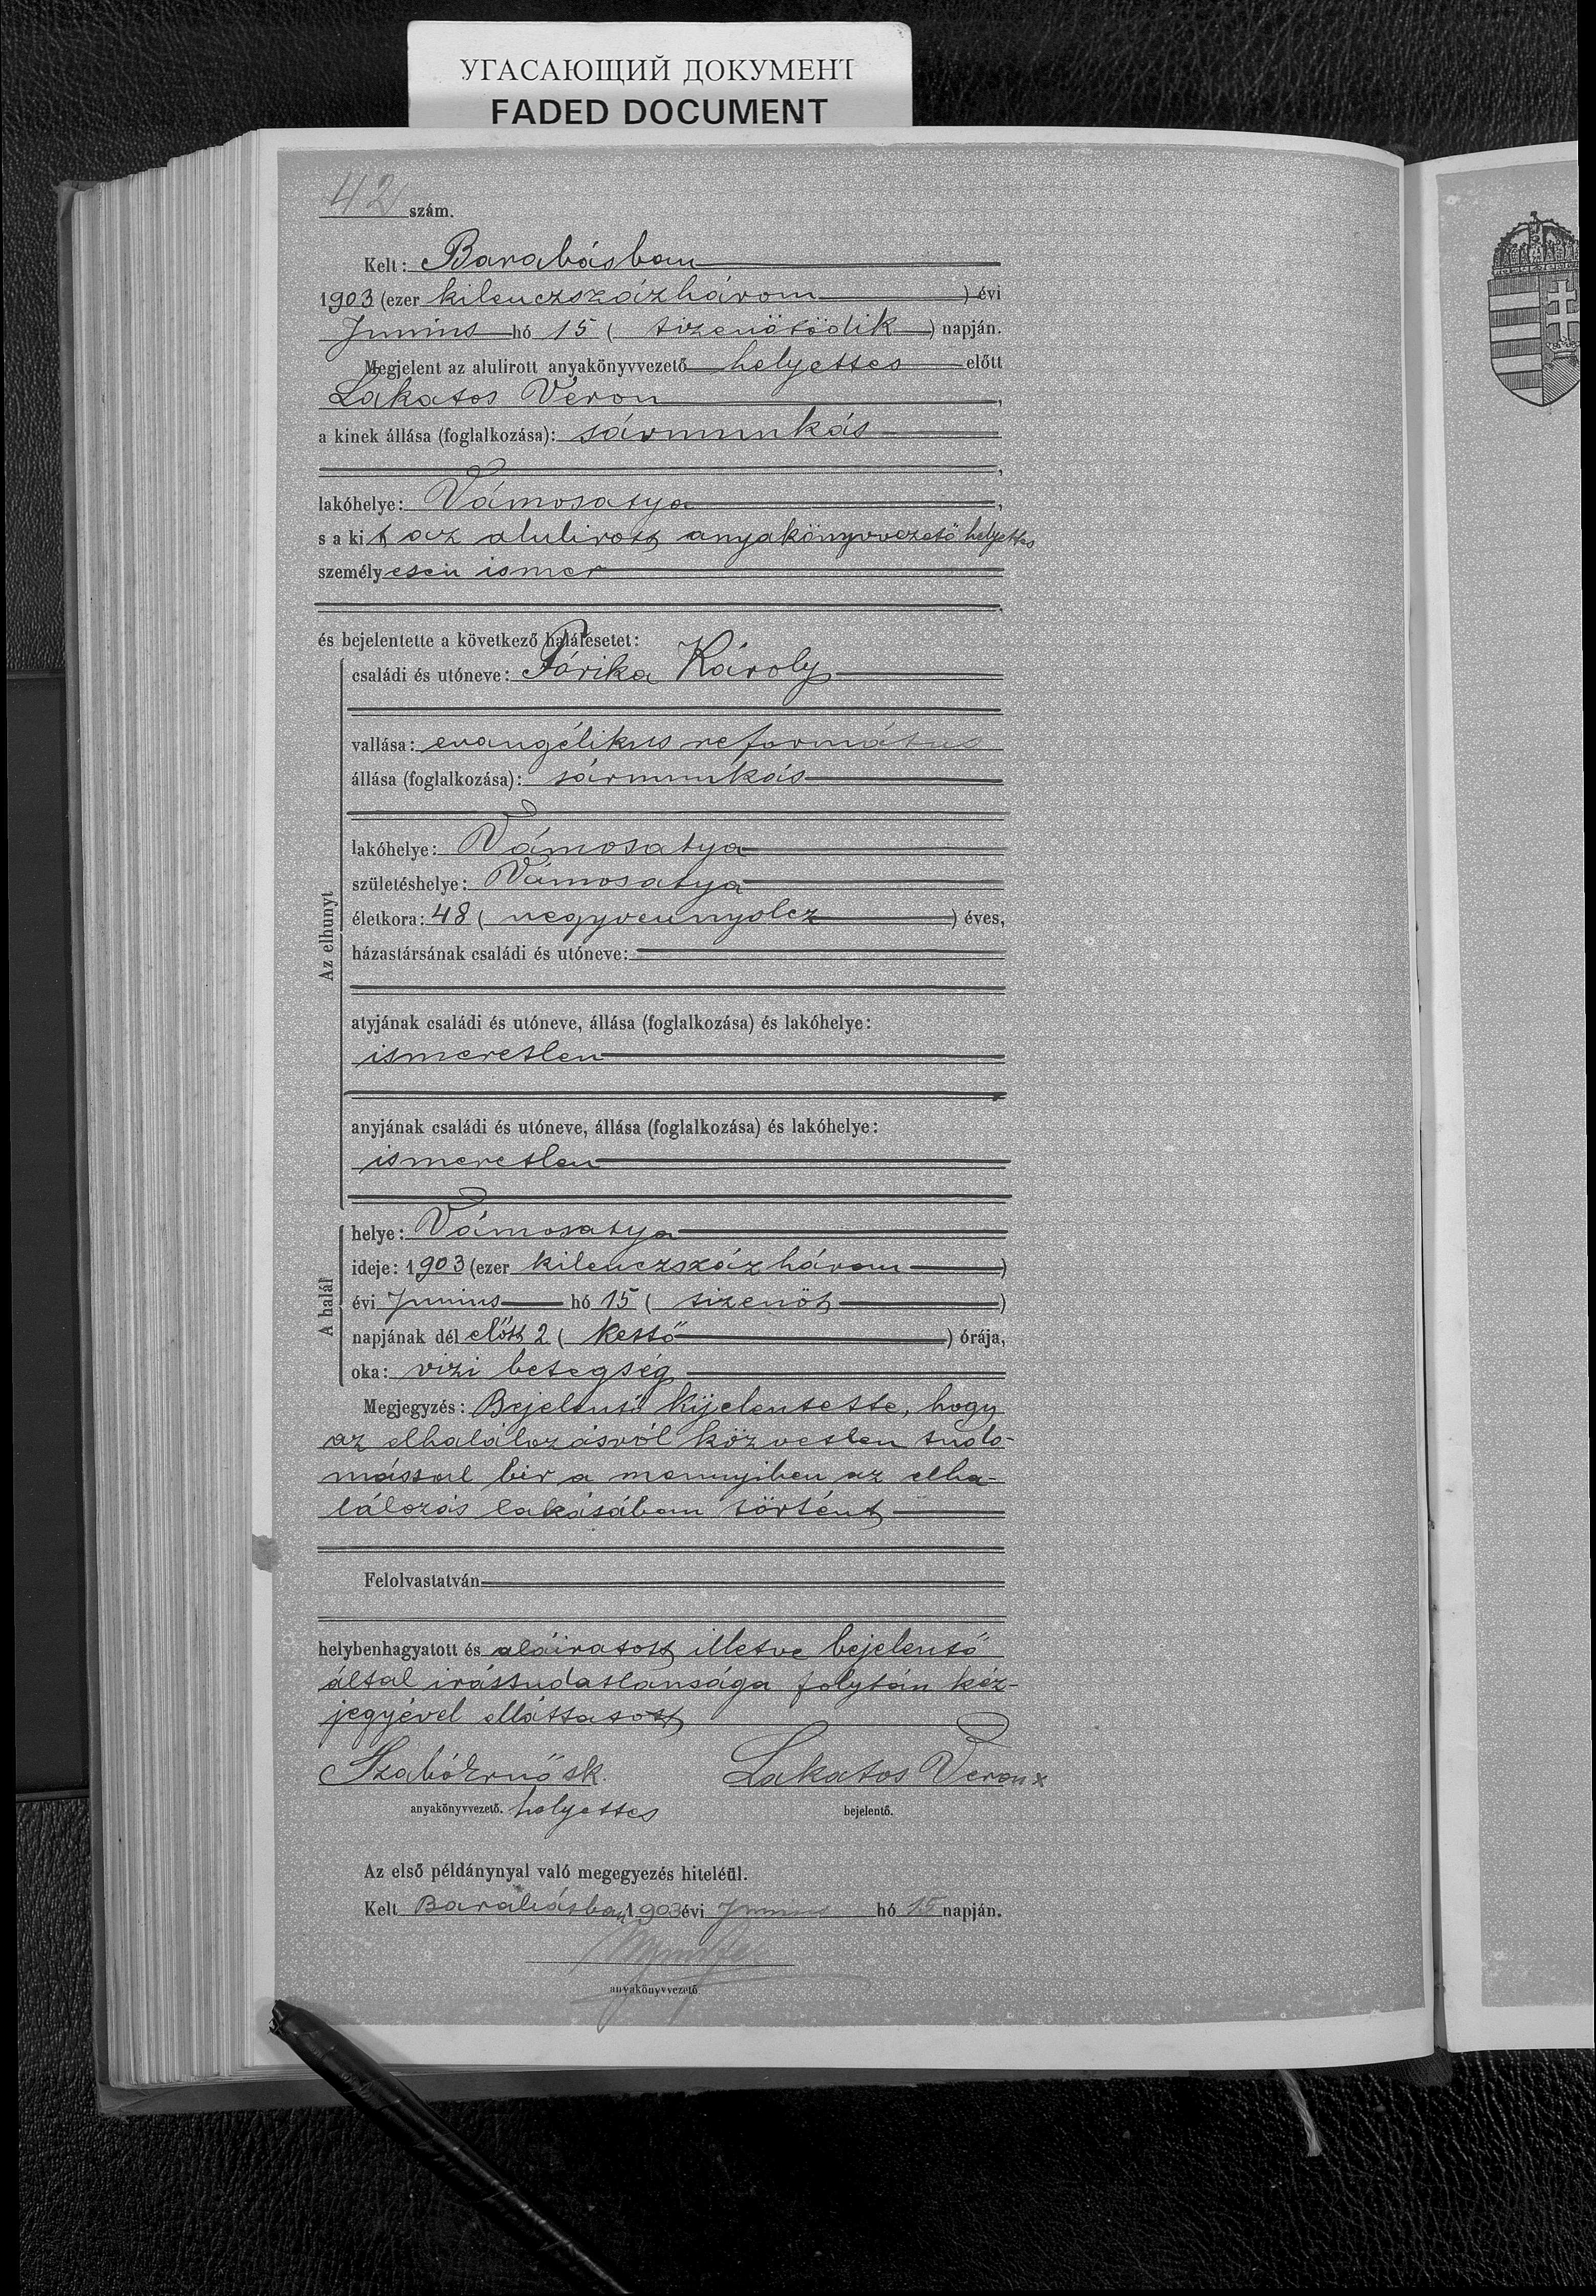 УГАСАЮЩИЙ ДОКУМЕНТ
FADED DOCUMENT
42 szám.
Kelt: Barabásban
1903 (ezer kilenczszázhárom ) évi
Junius hó 15 ( tizenötödik ) napján.
Megjelent az alulirott anyakönyvvezető helyettes előtt
Lakatos Veron ,
a kinek állása (foglalkozása): sármunkás
,
lakóhelye: Vámosatya ,
s a kit az alulirott anyakönyvvezető helyettes
személyesen ismer
.
és bejelentette a következő halálesetet:
Az elhunyt
családi és utóneve: Párika Károly
vallása: evangélikus református
állása (foglalkozása): sármunkás
lakóhelye: Vámosatya
születéshelye: Vámosatya
életkora: 48 ( negyvennyolcz ) éves,
házastársának családi és utóneve:
atyjának családi és utóneve, állása (foglalkozása) és lakóhelye:
ismeretlen
anyjának családi és utóneve, állása (foglalkozása) és lakóhelye:
ismeretlen
A halál
helye: Vámosatya
ideje: 1903 (ezer kilenczszázhárom )
évi Junius hó 15 ( tizenöt )
napjának dél előtt 2 ( kettő ) órája,
oka: vizi betegség
Megjegyzés: Bejelentő kijelentette, hogy
az elhalálozásról közvetlen tudo-
mással bir a mennyiben az elha-
lálozás lakásában történt
Felolvastatván
helybenhagyatott és aláiratott illetve bejelentő
által irástudatlansága folytán kéz-
jegyével elláttatott
Szabó Ernő sk. Lakatos Veron x
anyakönyvvezető. helyettes bejelentő.
Az első példánynyal való megegyezés hiteléül.
Kelt Barabásban 1903 évi Junius hó 15 napján.
anyakönyvvezető